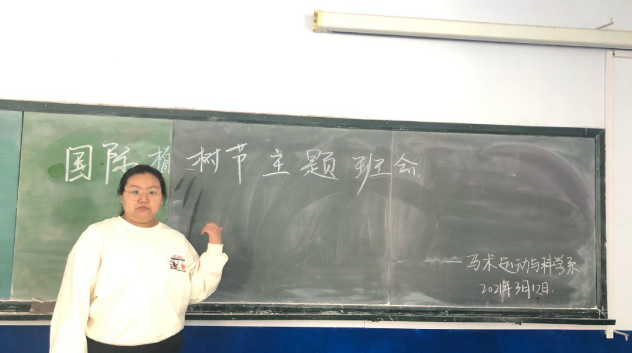 国际植树节主题班会
——马术运动与科学系
2021年3月12日.